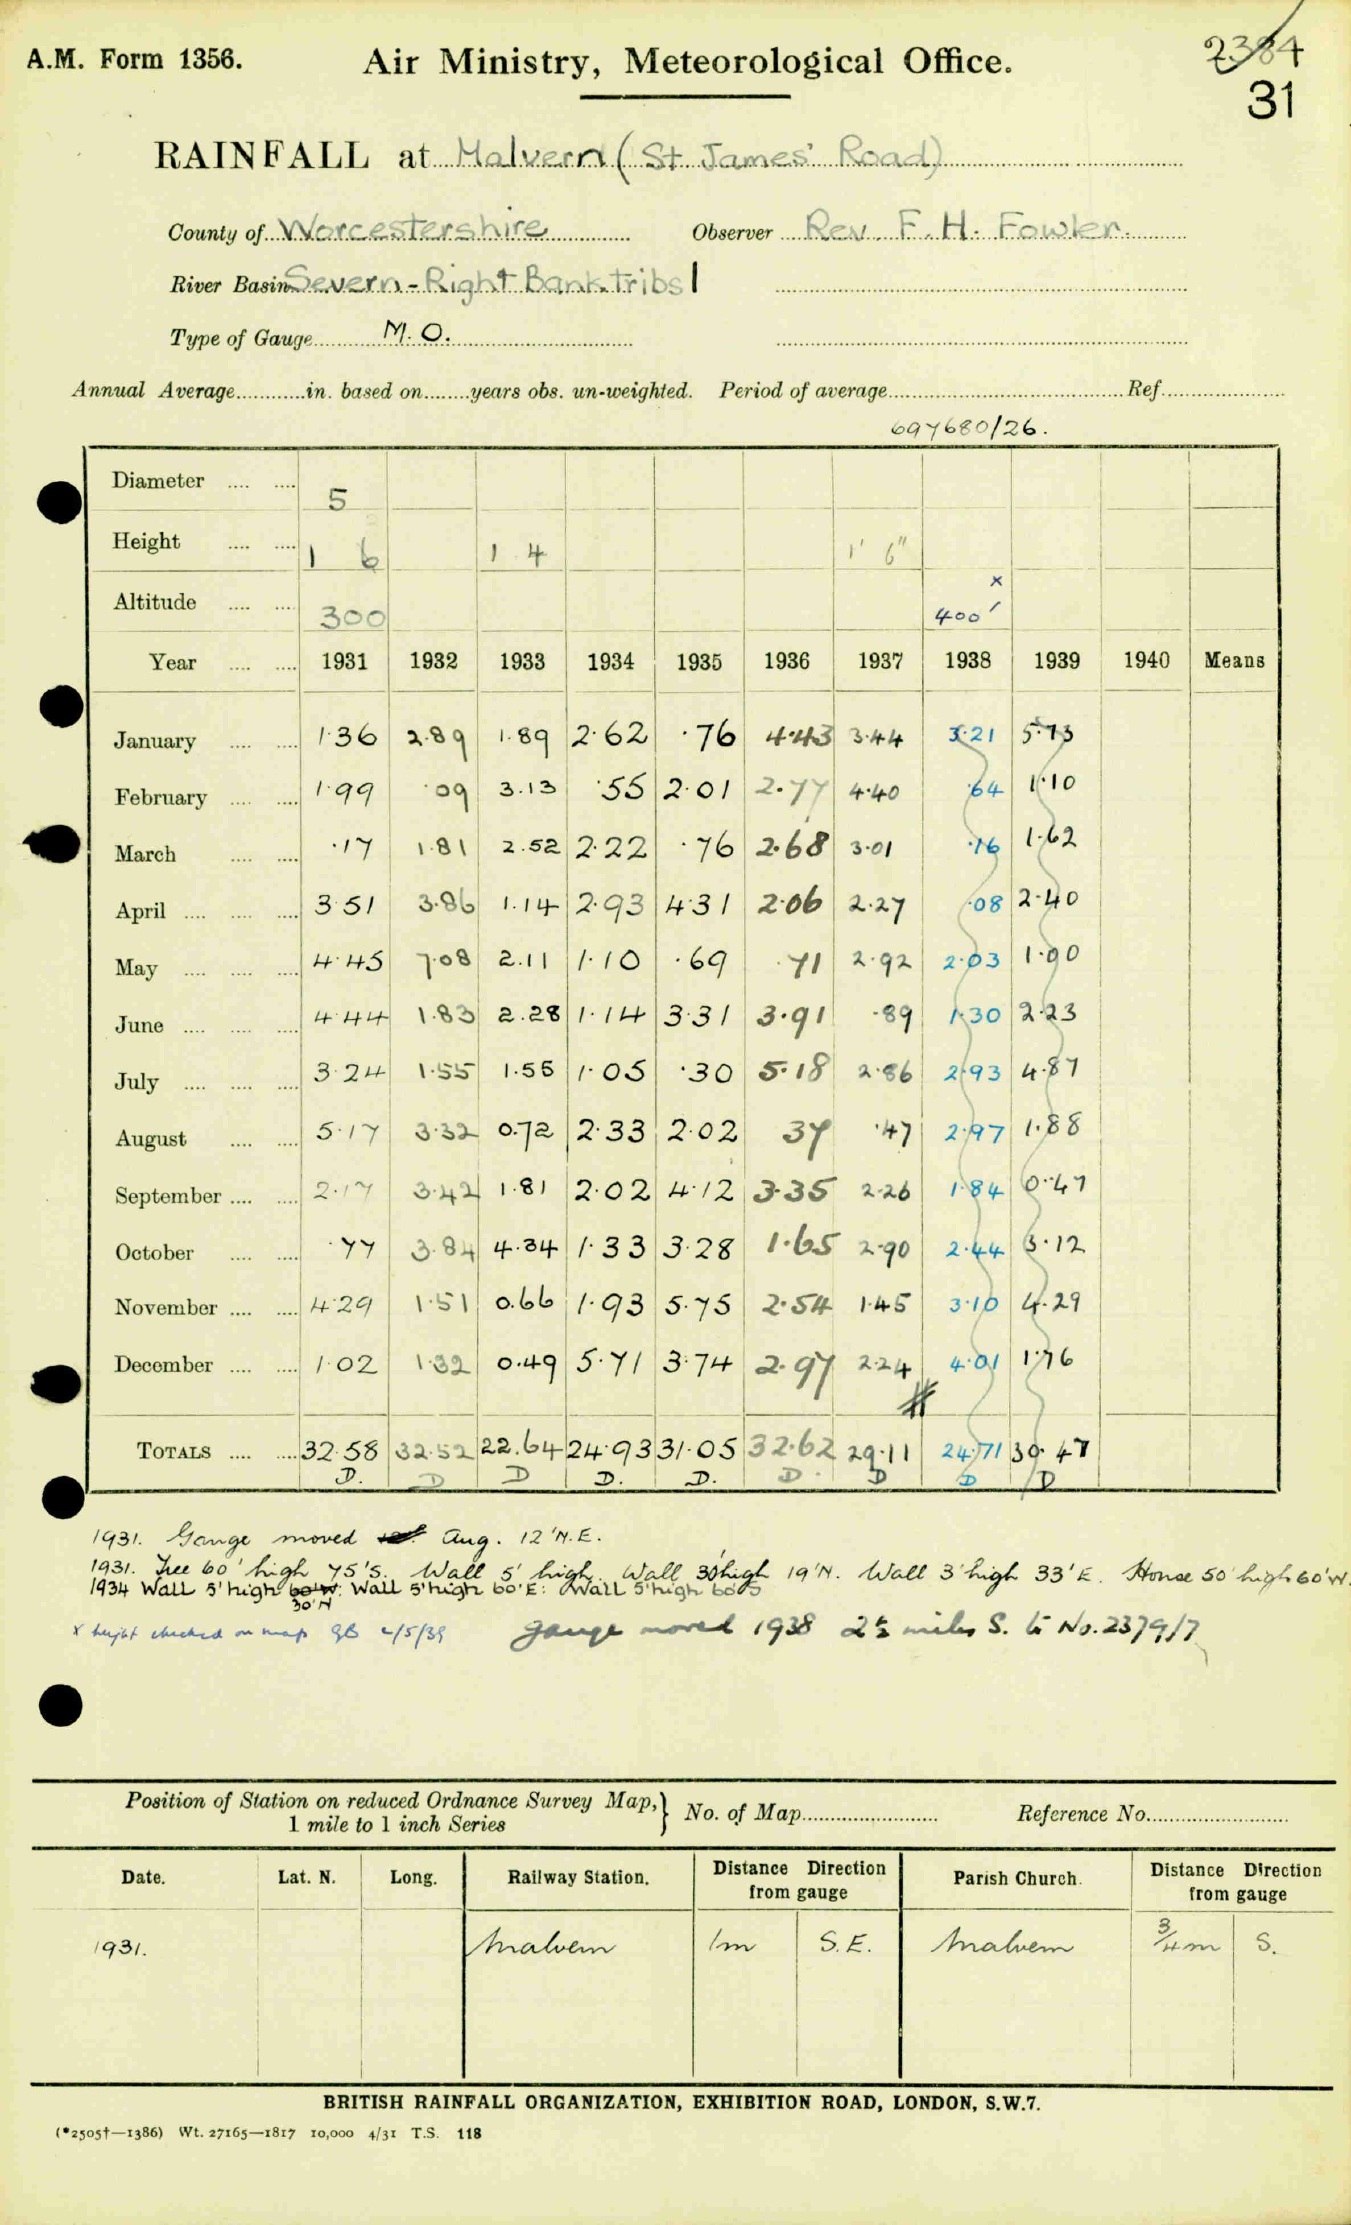 A.M. Form 1356.
Air Ministry, Meteorological Office.
2384
31
RAINFALL at Malvern (St James' Road)
County of Worcestershire Observer Rev. F. H. Fowler.
River Basin Severn - Right Bank Tribs 1
Type of Gauge M.O.
Annual Average in. based on years obs. un-weighted. Period of average Ref.
697680/26.
Diameter 5
Height 1 6 1 4 1' 6"
x
Altitude 300 400'
Year 1931 1932 1933 1934 1935 1936 1937 1938 1939 1940 Means
January 1.36 2.89 1.89 2.62 .76 4.43 3.44 3.21 5.73
February 1.99 .09 3.13 .55 2.01 2.77 4.40 .64 1.10
March .17 1.81 2.52 2.22 .76 2.68 3.01 .16 1.62
April 3.51 3.86 1.14 2.93 4.31 2.06 2.27 .08 2.40
May 4.45 7.08 2.11 1.10 .69 .71 2.92 2.03 1.00
June 4.44 1.83 2.28 1.14 3.31 3.91 .89 1.30 2.23
July 3.24 1.55 1.55 1.05 .30 5.18 2.86 2.93 4.87
August 5.17 3.32 0.72 2.33 2.02 37 .47 2.97 1.88
September 2.17 3.42 1.81 2.02 4.12 3.35 2.26 1.84 0.47
October .77 3.84 4.34 1.33 3.28 1.65 2.90 2.44 3.12
November 4.29 1.51 0.66 1.93 5.75 2.54 1.45 3.10 4.29
December 1.02 1.32 0.49 5.71 3.74 2.97 2.24 4.01 1.76
TOTALS 32.58 32.52 22.64 24.93 31.05 32.62 29.11 24.71 30.47
D. D D D. D. D. D D D
1931. Gauge moved Aug. 12' N.E.
1931. Tree 60' high 75' S. Wall 5' high. Wall 30' high 19' N. Wall 3' high 33' E. House 50' high 60' W.
1934 Wall 5' high 60' W: Wall 5' high 60' E: Wall 5' high 60' S
30' N
x height checked on map GB 2/5/39 gauge moved 1938 2½ miles S. to No. 2379/7
Position of Station on reduced Ordnance Survey Map, 1 mile to 1 inch Series } No. of Map Reference No.
Date. Lat. N. Long. Railway Station. Distance Direction from gauge Parish Church. Distance Direction from gauge
1931. Malvern 1m S.E. Malvern ¾m S.
BRITISH RAINFALL ORGANIZATION, EXHIBITION ROAD, LONDON, S.W.7.
(*2505†—1386) Wt. 27165—1817 10,000 4/31 T.S. 118